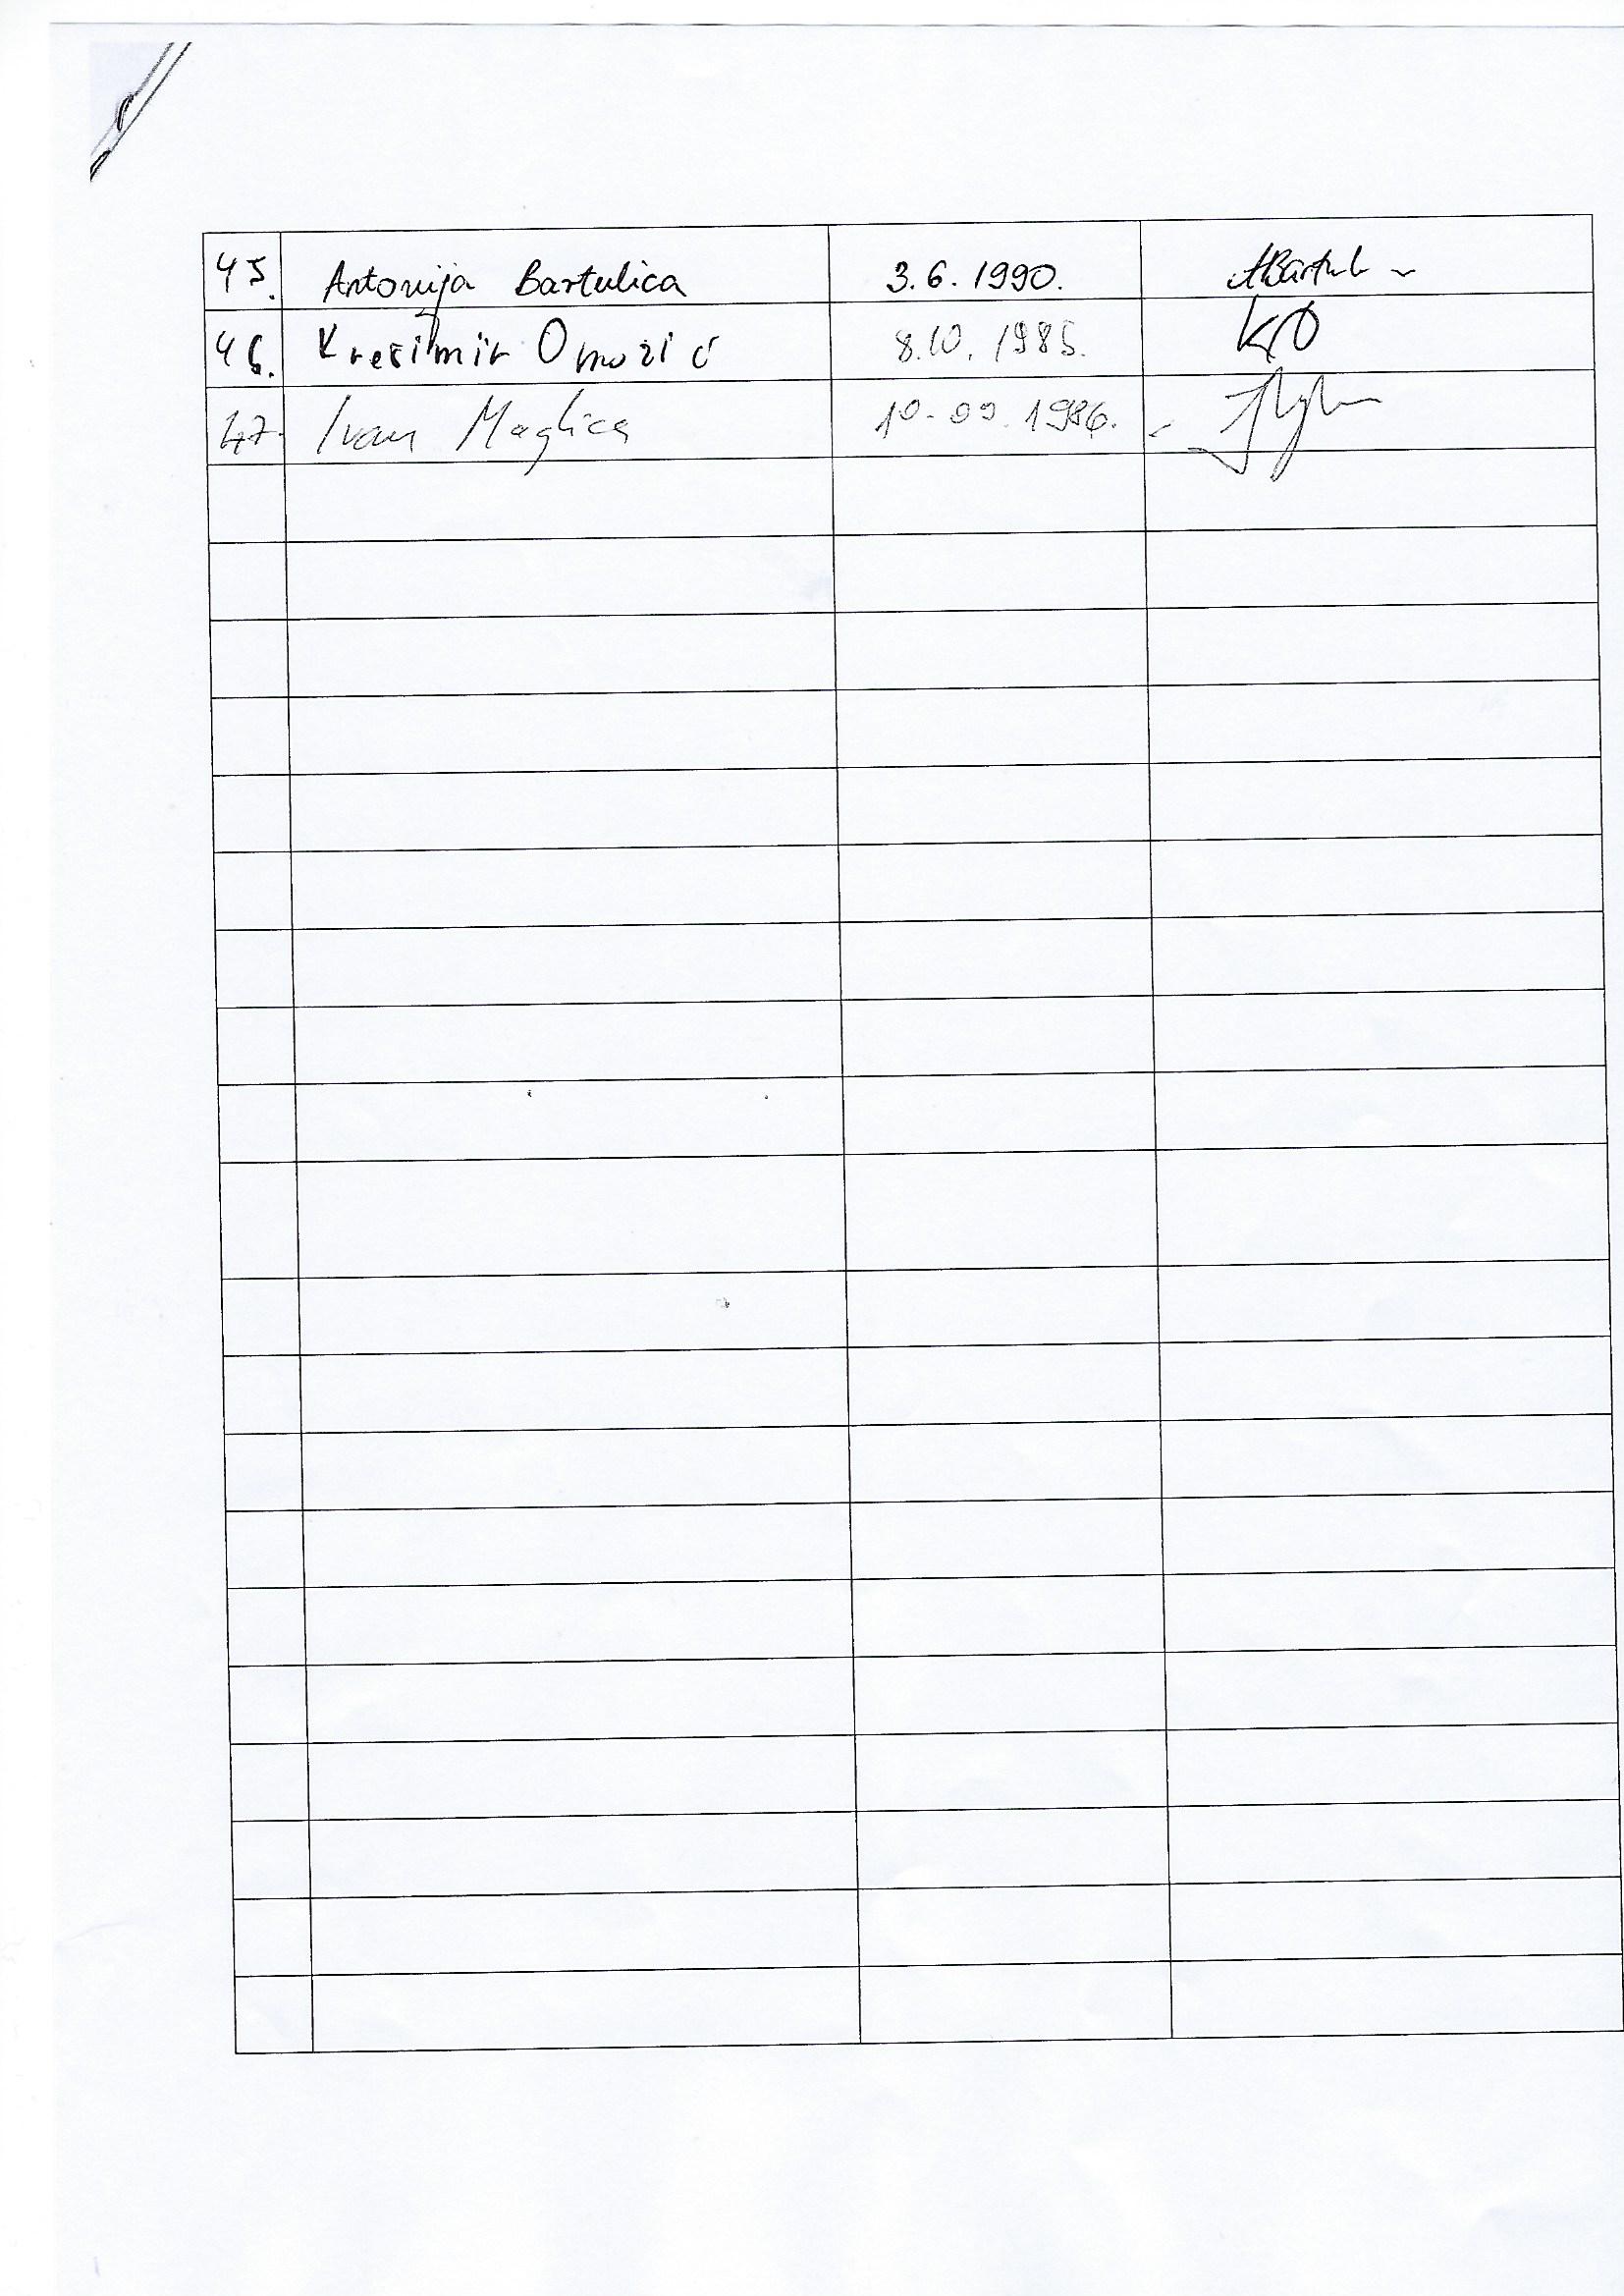 45. Antonija Bartulica 3.6.1990. ABartul
46. Krešimir Omozić 8.10.1985. KO
47. Ivan Maglica 10-09.1986.